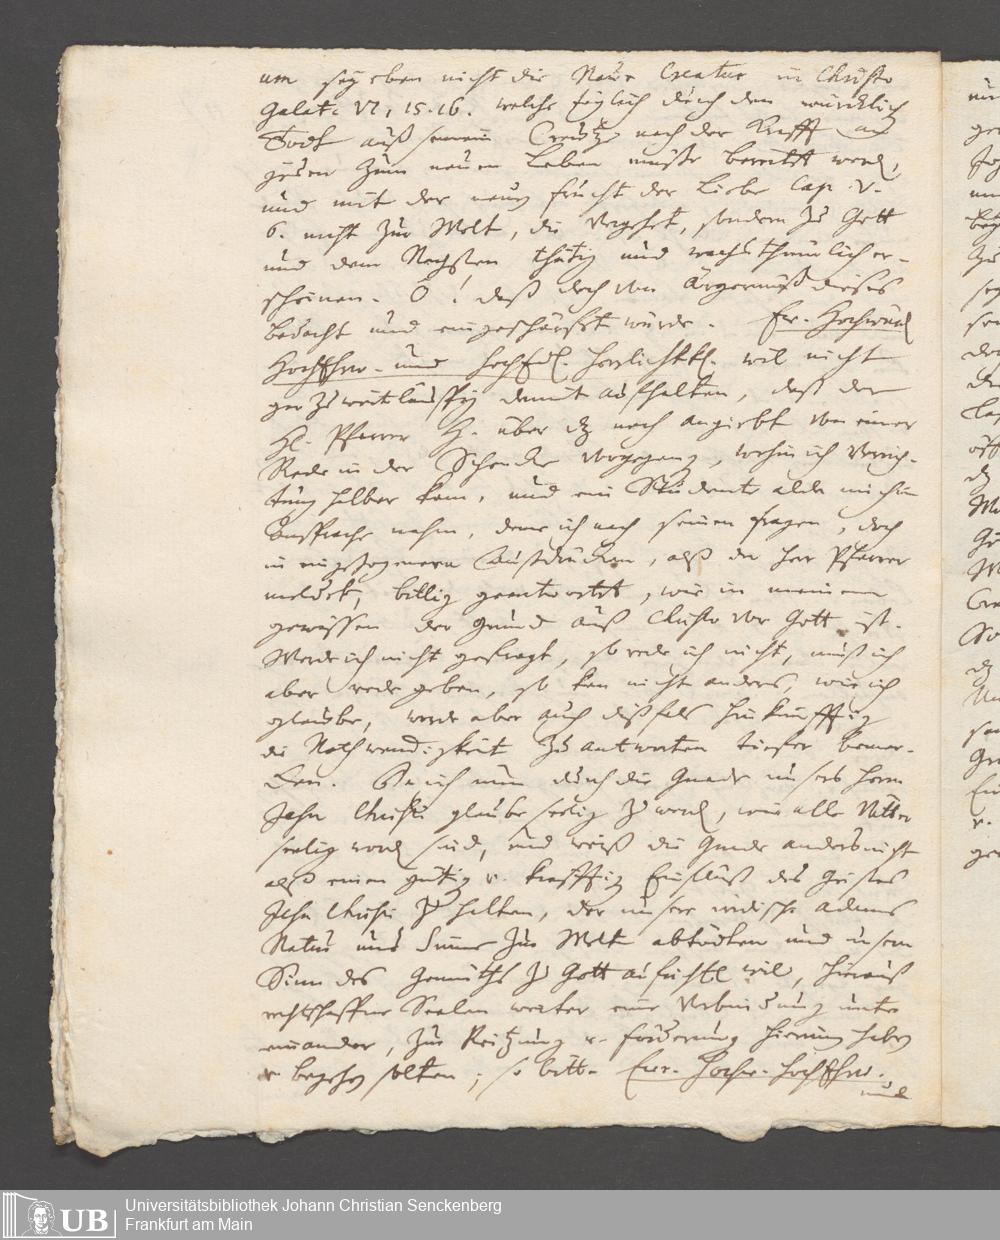 um sey eben nicht die Neüe Creatur in Christo
Galat. VI, 15.16. welche täglich durch den würcklich
Todt auß seinem Creütz nach der Krafft
zum neuen Leben müße bereitet werd,
und mit der neuen frücht der Liebe Cap. V.
6. nicht zur Welt, die vergehet, sondern zu Gott
und dem Nechsten thätig und wachsthümlich er-
scheinen. O! daß doch von Ärgernüß dieses
bedacht und eingeschärfft würde. Ew. Hochwürd
Hochfhrw- und Hochedl. Herrlichktl. wil nicht
gar zu weitläufftig damit aufhalten, daß der
H. Pfarrer H. über dz noch angiebt von einer
Rede in der Schencke vorgegang, wohin ich Verrich-
tung halber kam, und ein Studente alda mich in
Ansprache nahm, deme ich nach seinen fragen, doch
in eingezogenern Außdrücken, alß der Herr Pfarrer
meldet, billig geantwortet, wie in meinem
gewissen der grund auß Christo vor Gott ist.
Werde ich nicht gefragt, so rede ich nicht, muß ich
aber rede geben, so kan nicht anders, wie ich
glaube, werde aber auch dißfals hinkünfftig
die Nothwendigkeit zu antworten tiefer bemer-
cken. Da ich nun durch die Gnade unsers Herrn
Jesu Christi glaube seelig zu werd, wie alle Vätter
seelig word sind, und weiß die Gnade anders nicht
alß einen gütig u. kräfftig Einfluß des Geistes
Jesu Christi zu halten, der unsere irdische Adams
Natur und Sinne zur Welt abtödten und unsern
Sinn des Gemüths zu Gott aufrichtl wil, hierauß
rechtschaffne Seelen weiter eine Verbindung unter
einander, zur Reitzung u. forderung hierinn haben
u. begehen solten; so bitte Ewr. Hochw. Hochfhrw.
und
Universitätsbibliothek Johann Christian Senckenberg
Frankfurt am Main
UB